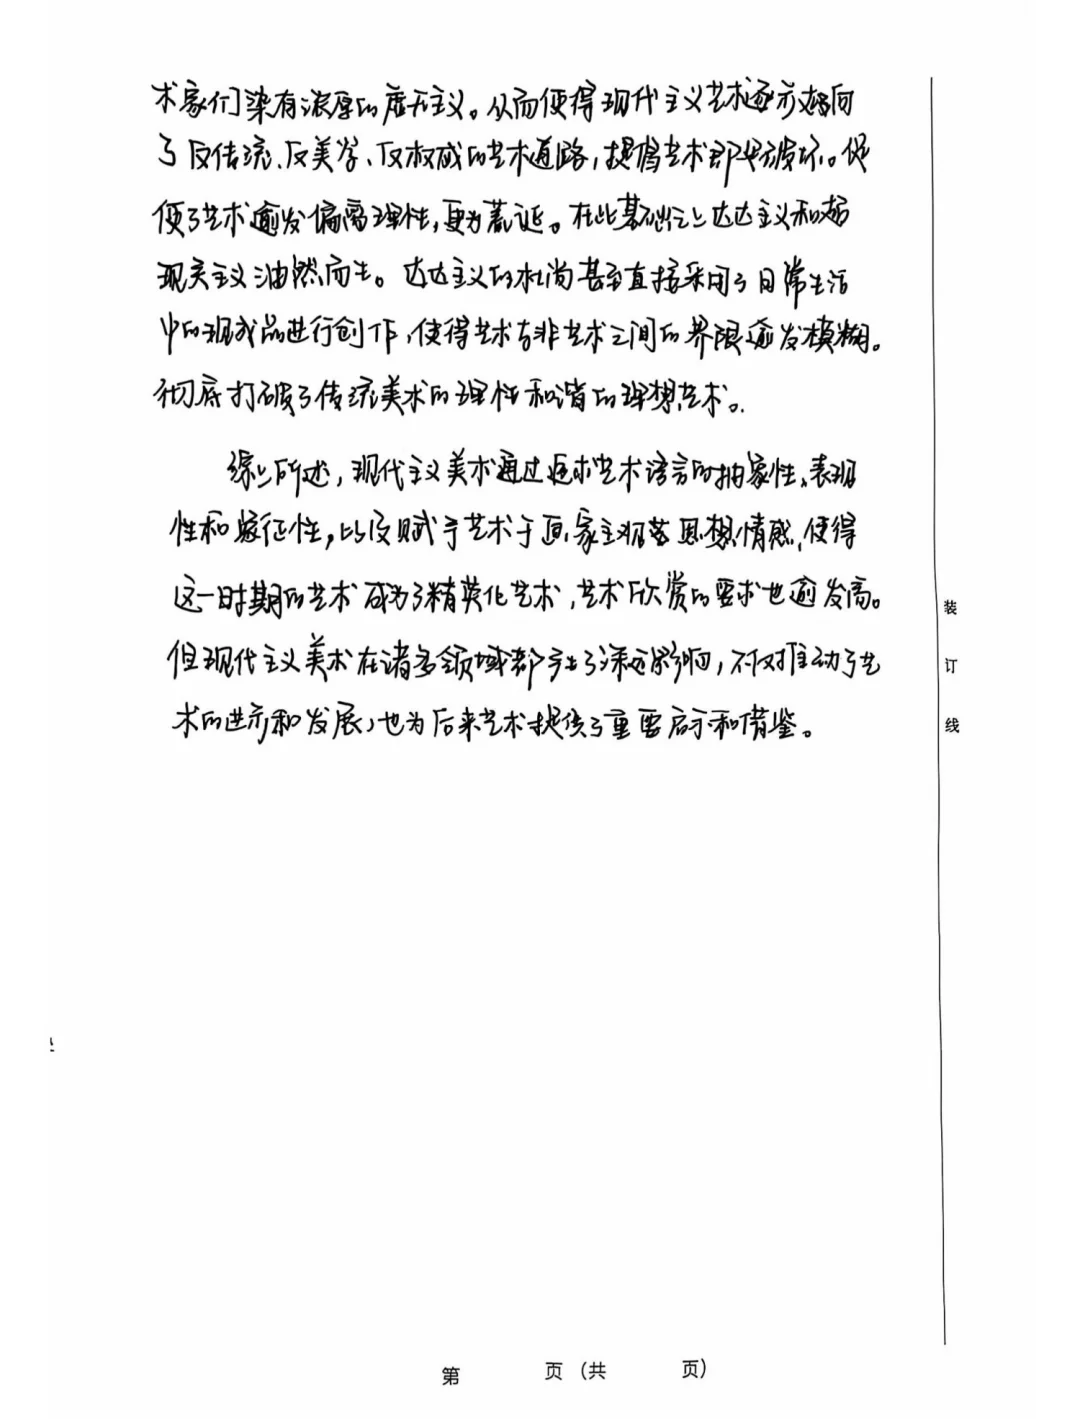 术家们染有浓厚的虚无主义。从而使得现代主义艺术逐步趋向
了反传统、反美学、反权威的艺术道路，提倡艺术即是破坏。促
使了艺术愈发偏离理性，更为荒诞。在此基础之上达达主义和超
现实主义油然而生。达达主义的杜尚甚至直接采用了日常生活
中的现成品进行创作，使得艺术与非艺术之间的界限愈发模糊。
彻底打破了传统美术的理性和谐的理想艺术。
综上所述，现代主义美术通过追求艺术语言的抽象性、表现
性和象征性，以及赋予艺术于画家主观思想情感，使得
这一时期的艺术成为了精英化艺术，艺术欣赏的要求也愈发高。
但现代主义美术在诸多领域都产生了深远影响，不仅推动了艺
术的进步和发展，也为后来艺术提供了重要启示和借鉴。
装
订
线
第 页（共 页）